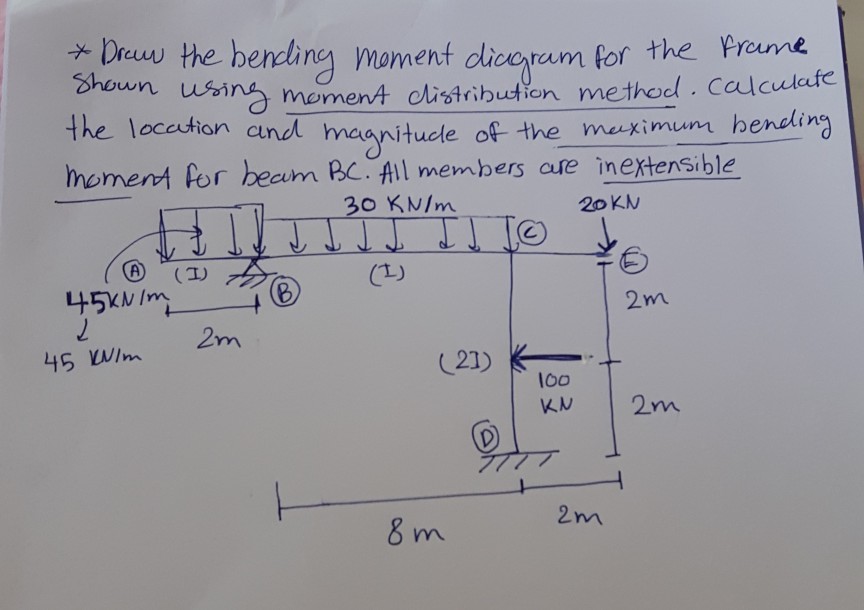 * Draw the bending moment diagram for the frame
shown using moment distribution method. Calculate
the location and magnitude of the maximum bending
moment for beam BC. All members are inextensible
30 KN/m
20KN
C
A
(I)
B
(I)
E
45KN/m
2m
45 KN/m
2m
(2I)
100
KN
2m
D
8m
2m